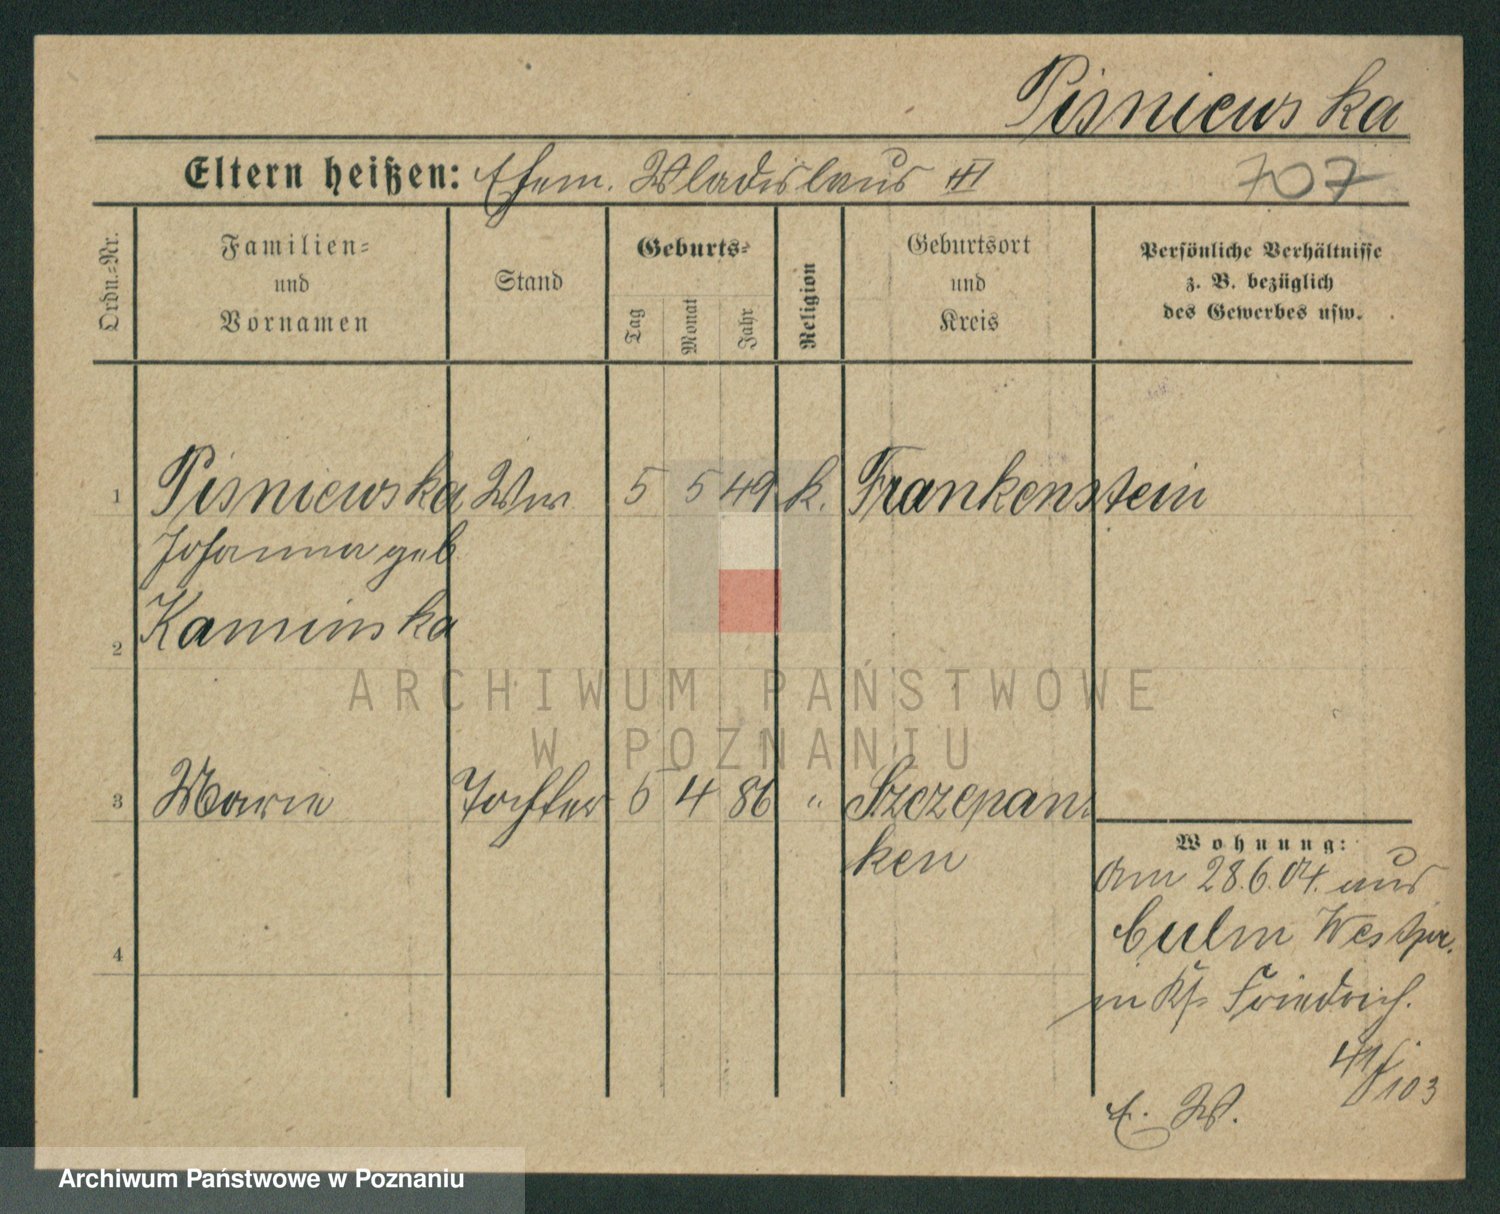 Pisniewska
Eltern heißen: Ehem. Wladislaus
707
Ordn.=Nr.
Familien=
und
Vornamen
Stand
Geburts=
Tag
Monat
Jahr
Religion
Geburtsort
und
Kreis
Persönliche Verhältnisse
z. B. bezüglich
des Gewerbes usw.
1 Pisniewska Ww 5 5 49 k. Frankenstein
Johanna geb
2 Kaminska
ARCHIWUM PAŃSTWOWE
W POZNANIU
3 Marie Tochter 6 4 86 " Szczepan
ken
Wohnung:
am 28.6.04. aus
Culm Westpr.
in Kf Friedrich.
4
41/103
E. W.
Archiwum Państwowe w Poznaniu